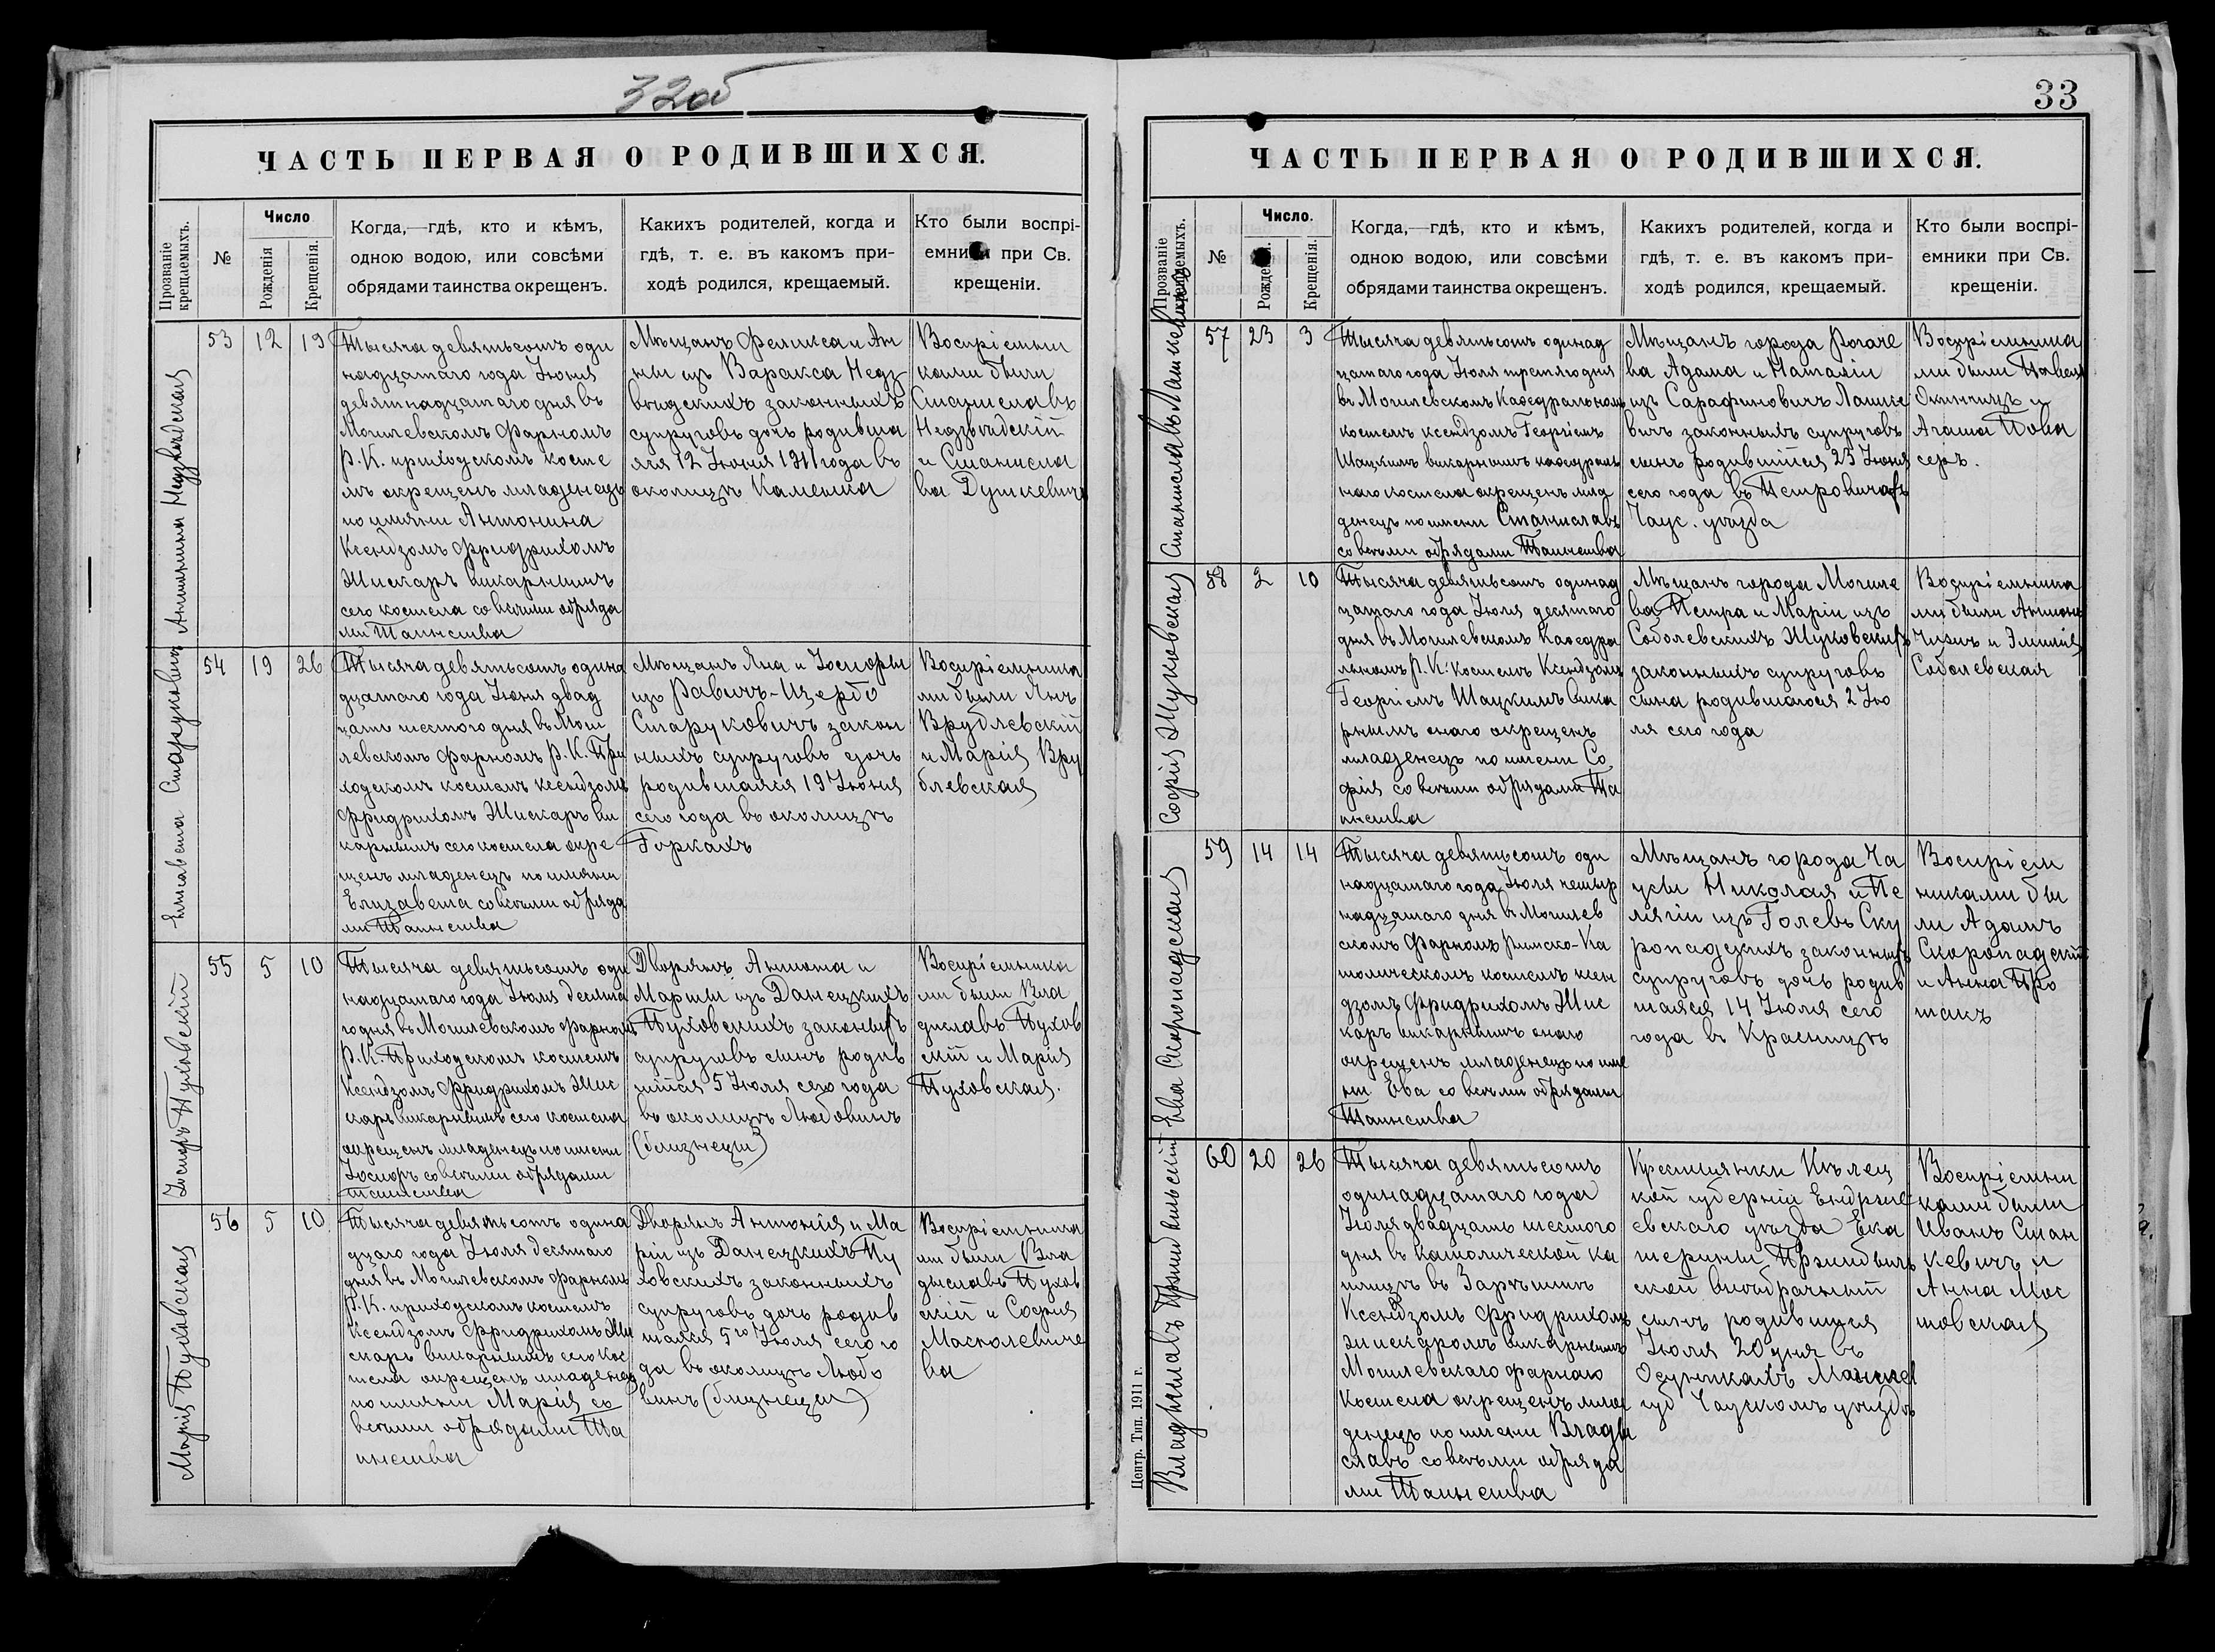 32об
ЧАСТЬ ПЕРВАЯ О РОДИВШИХСЯ.
Прозваніе крещаемыхъ.
№
Число
Рожденія
Крещенія.
Когда,—гдѣ, кто и кѣмъ,
одною водою, или совсѣми
обрядами таинства окрещенъ.
Какихъ родителей, когда и
гдѣ, т. е. въ какомъ при-
ходѣ родился, крещаемый.
Кто были воспрі-
емники при Св.
крещеніи.
53 12 19
Тысяча девятьсотъ оди
надцатаго года Іюня
девятнадцатаго дня въ
Могилевскомъ Фарномъ
Р.К. приходскомъ косте
лѣ окрещенъ младенецъ
по имяни Антонина
Ксендзомъ Фридрихомъ
Жискаръ викарнымъ
сего костела со всѣми обряда
ми Таинства
Мѣщанъ Феликса и Ан
ны изъВаракса Недз
вѣдскихъ законныхъ
супруговъ дочь родивша
яся 12 Іюня 1911 года въ
околицѣ Каменка
Воспріемни
ками были
Станиславъ
Недзвѣдскій
и Станисла
ва Душкевичъ
Елизавета Старуковичъ
54 19 26
Тысяча девятьсотъ одина
дцатаго года Іюня двад
цать шестого дня въ Моги
левскомъ Фарномъ Р.К. При
ходскомъ костелѣ ксендзомъ
Фридрихомъ Жискаръ ви
карнымъ сего костела окре
щенъ младенецъ по имяни
Елизавета со всѣми обряда
ми Таинства
Мѣщанъ Яна и Іосифы
изъ Равичъ-Щербо
Старуковичъ закон
ныхъ супруговъ дочь
родившаяся 19 Іюня
сего года въ околицѣ
Горкахъ
Воспріемника
ми были Янъ
Врублевскій
и Марія Вру
блевская
Іосифъ Пуховскій
55 5 10
Тысяча девятьсотъ оди
надцатаго года Іюля десята
го дня въ Могилевскомъ Фарномъ
Р.К. Приходскомъ костелѣ
Ксендзомъ Фридрихомъ Жис
каръ викарнымъ сего костела
окрещенъ младенецъ по имени
Іосифъ со всѣми обрядами
таинства
Дворянъ Антона и
Маріи изъ Данецкихъ
Пуховскихъ законныхъ
супруговъ сынъ родив
шійся 5 Іюля сего года
въ околицѣ Любовинѣ
(близнецы)
Воспріемника
ми были Вла
диславъ Пухов
скій и Марія
Пуховская.
Марія Пуховская
56 5 10
Тысяча девятьсотъ одина
дцаго года Іюля десятаго
дня въ Могилевскомъ Фарномъ
Р.К. приходскомъ костелѣ
Ксендзомъ Фридрихомъ Жи
скаръ викарнымъ сего кос
тела окрещенъ младенецъ
по имяни Марія со
всѣми обрядами Та
инства
Дворянъ Антонія и Ма
ріи изъ Данецкихъ Пу
ховскихъ законныхъ
супруговъ дочь родив
шаяся 5го Іюля сего го
да въ околицѣ Любо
винѣ (близнецы)
Воспріемника
ми были Вла
дыславъ Пухов
скій и Софія
33
ЧАСТЬ ПЕРВАЯ О РОДИВШИХСЯ.
Прозваніе крещаемыхъ.
№
Число.
Рожденія.
Крещенія.
Когда,—гдѣ, кто и кѣмъ,
одною водою, или совсѣми
обрядами таинства окрещенъ.
Какихъ родителей, когда и
гдѣ, т. е. въ какомъ при-
ходѣ родился, крещаемый.
Кто были воспрі-
емники при Св.
крещеніи.
57 23 3
Тысяча девятьсотъ одинад
цатаго года Іюля третяго дня
въ Могилевскомъ Каѳедральномъ
костелѣ ксендзомъ Георгіемъ
Шацкимъ викарнымъ каѳедраль
наго костела окрещенъ мла
денецъ по имени Станиславъ
со всѣми обрядами Таинства
Мѣщанъ города Рогаче
ва Адама и Наталіи
изъ Сарафиновичъ
законныхъ супруговъ
сынъ родившійся 23 Іюня
сего года въ Петровичахъ
Чаус. уѣзда
Воспріемника
ми были
и
Агата
Софія Жуковская
58 2 10
Тысяча девятьсотъ одинад
цатаго года Іюля десятаго
дня въ Могилевскомъ Каѳедра
льномъ Р.К. костелѣ Ксендзомъ
Георгіемъ Шацкимъ Вика
рнымъ онаго окрещенъ
младенецъ по имени Со
фія со всѣми обрядами Та
инства
Мѣщанъ города Могиле
ва Петра и Маріи изъ
Соболевскихъ Жуковскихъ
законныхъ супруговъ
сына родившагося 2 Ію
ля сего года
Воспріемника
ми были Антонъ
и Эмилія
Соболевская
Ева Скоропадская
59 14 14
Тысяча девятьсотъ оди
надцатаго года Іюля четыр
надцатаго дня въ Могилев
скомъ Фарномъ Римско-Ка
толическомъ костелѣ ксен
дзомъ Фридрихомъ Жис
каръ викарнымъ онаго
окрещенъ младенецъ по име
ни Ева со всѣми обрядами
Таинства
Мѣщанъ города Ча
усы Николая и Пе
лагіи изъ Голевъ Ску
ропадскихъ законныхъ
супруговъ дочь родив
шаяся 14 Іюля сего
года въ Красницѣ
Воспріем
никами бы
ли Адамъ
Скоропадскій
и Анна Про
такъ
60 20 26
Тысяча девятьсотъ
одинадцатаго года
Іюля двадцать шестого
дня въ католической ка
плицѣ въ Зарѣстьѣ
Ксендзомъ Фридрихомъ
Жискаромъ викарнымъ
Могилевскаго фарнаго
Костела окрещенъ мла
денецъ по имени Влады
славъ со всѣми обряда
ми Таинства
Крестьянки Кѣлец
кой губерніи Ендрже
евскаго уѣзда Ека
терины Пржибыль
ской внѣбрачный
сынъ родившійся
Іюля 20 дня въ
губ Чаускомъ уѣздѣ
Воспріемни
ками были
Иванъ Стан
кевичъ и
Анна Мос
товская
Центр. Тип. 1911 г.